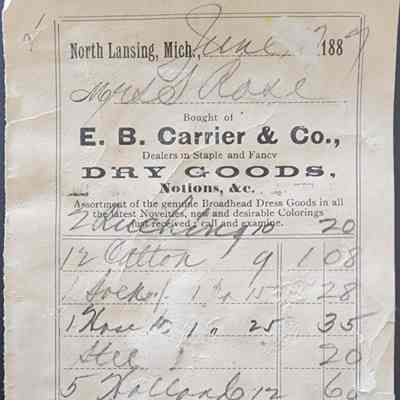 North Lansing, Mich., June 188
Mrs Rose
Bought of
E. B. Carrier & Co.,
Dealers in Staple and Fancy
DRY GOODS,
Notions, &c.
Assortment of the genuine Broadhead Dress Goods in all
the latest Novelties, new and desirable Colorings
just received; call and examine.
2 10 20
12 Cotton 9 1 08
1 15 28
1 Hose 10 1 25 35
20
5 Holland 12 60